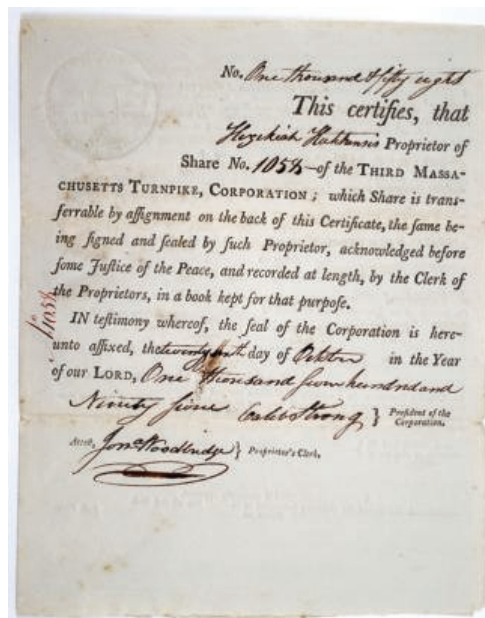 No. One thousand & fifty eight
This certifies, that
Hezekiah Proprietor of
Share No. 1058 of the THIRD MASSA-
CHUSETTS TURNPIKE, CORPORATION; which Share is trans-
ferrable by assignment on the back of this Certificate, the same be-
ing signed and sealed by such Proprietor, acknowledged before
some Justice of the Peace, and recorded at length, by the Clerk of
the Proprietors, in a book kept for that purpose.
IN testimony whereof, the seal of the Corporation is here-
unto affixed, the day of October in the Year
of our LORD, One thousand seven hundred and
Ninety seven Caleb Strong } President of the
Corporation.
Attest, Jonª Woodbridge } Proprietor's Clerk.
1058